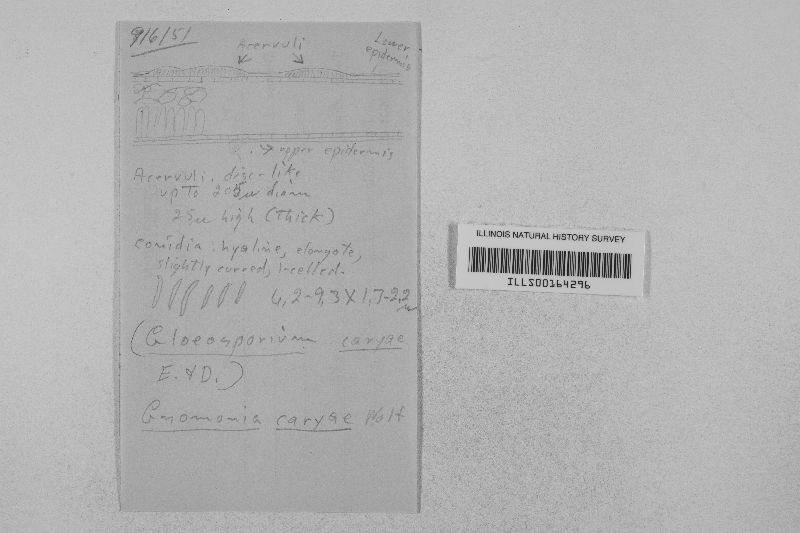 9/6/51
Acervuli
Lower
epidermis
upper epidermis
Acervuli. disc-like
up to 205µ diam
25µ high (thick)
conidia: hyaline, elongate,
slightly curved, 1-celled.
4,2-9,3 X 1,7-2,2
µ
(Gloeosporium caryae
E. & D.)
Gnomonia caryae Wolf
ILLINOIS NATURAL HISTORY SURVEY
ILLS00164296